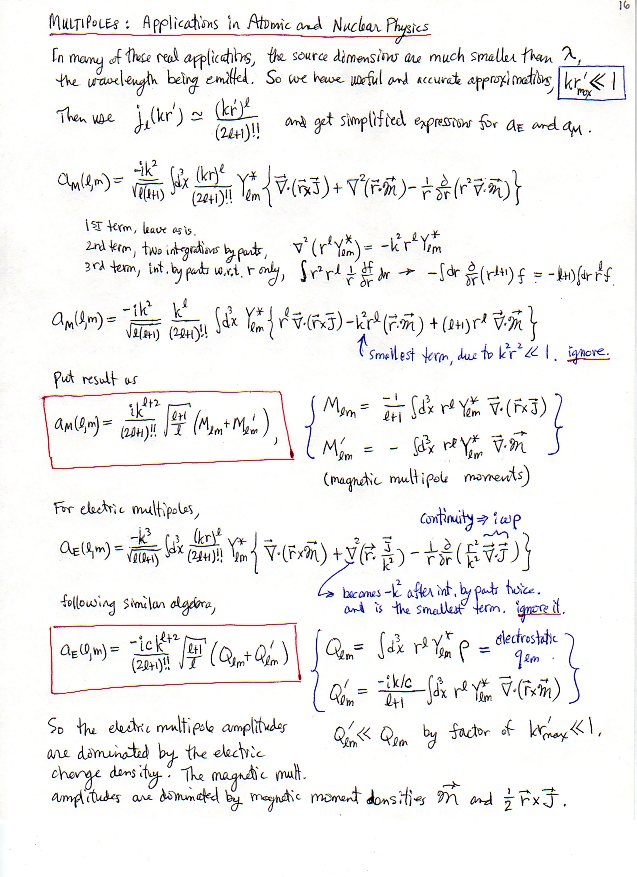 16
MULTIPOLES: Applications in Atomic and Nuclear Physics
In many of these real applications, the source dimensions are much smaller than λ,
the wavelength being emitted. So we have useful and accurate approximations, kr'_max ≪ 1
Then use j_l(kr') ≃ (kr')^l / (2l+1)!! and get simplified expressions for a_E and a_M.
a_M(l,m) = -ik² / √(l(l+1)) ∫d³x (kr)^l / (2l+1)!! Y*_lm { ∇⃗·(r⃗×J⃗) + ∇²(r⃗·m⃗) - 1/r ∂/∂r (r² ∇⃗·m⃗) }
1ST term, leave as is.
2nd term, two integrations by parts, ∇²(r^l Y*_lm) = -k² r^l Y*_lm
3rd term, int. by parts w.r.t. r only, ∫r² r^l 1/r ∂f/∂r dr → -∫dr ∂/∂r (r^(l+1)) f = -(l+1)∫dr r^l f.
a_M(l,m) = -ik² / √(l(l+1)) k^l / (2l+1)!! ∫d³x Y*_lm { r^l ∇⃗·(r⃗×J⃗) - k² r^l (r⃗·m⃗) + (l+1) r^l ∇⃗·m⃗ }
↑ smallest term, due to k²r² ≪ 1. ignore.
Put result as
a_M(l,m) = ik^(l+2) / (2l+1)!! √((l+1)/l) (M_lm + M'_lm),
{ M_lm = -1/(l+1) ∫d³x r^l Y*_lm ∇⃗·(r⃗×J⃗)
M'_lm = - ∫d³x r^l Y*_lm ∇⃗·m⃗ }
(magnetic multipole moments)
For electric multipoles,
continuity ⇒ iωρ
a_E(l,m) = -k³ / √(l(l+1)) ∫d³x (kr)^l / (2l+1)!! Y*_lm { ∇⃗·(r⃗×m⃗) + ∇²(r⃗·J⃗/k²) - 1/r ∂/∂r (r²/k² ∇⃗·J⃗) }
→ becomes -k² after int. by parts twice.
and is the smallest term. ignore it.
following similar algebra,
a_E(l,m) = -ick^(l+2) / (2l+1)!! √((l+1)/l) (Q_lm + Q'_lm)
{ Q_lm = ∫d³x r^l Y*_lm ρ = electrostatic q_lm
Q'_lm = -ik/c / (l+1) ∫d³x r^l Y*_lm ∇⃗·(r⃗×m⃗) }
Q'_lm ≪ Q_lm by factor of kr'_max ≪ 1.
So the electric multipole amplitudes
are dominated by the electric
charge density. The magnetic mult.
amplitudes are dominated by magnetic moment densities m⃗ and ½ r⃗×J⃗.